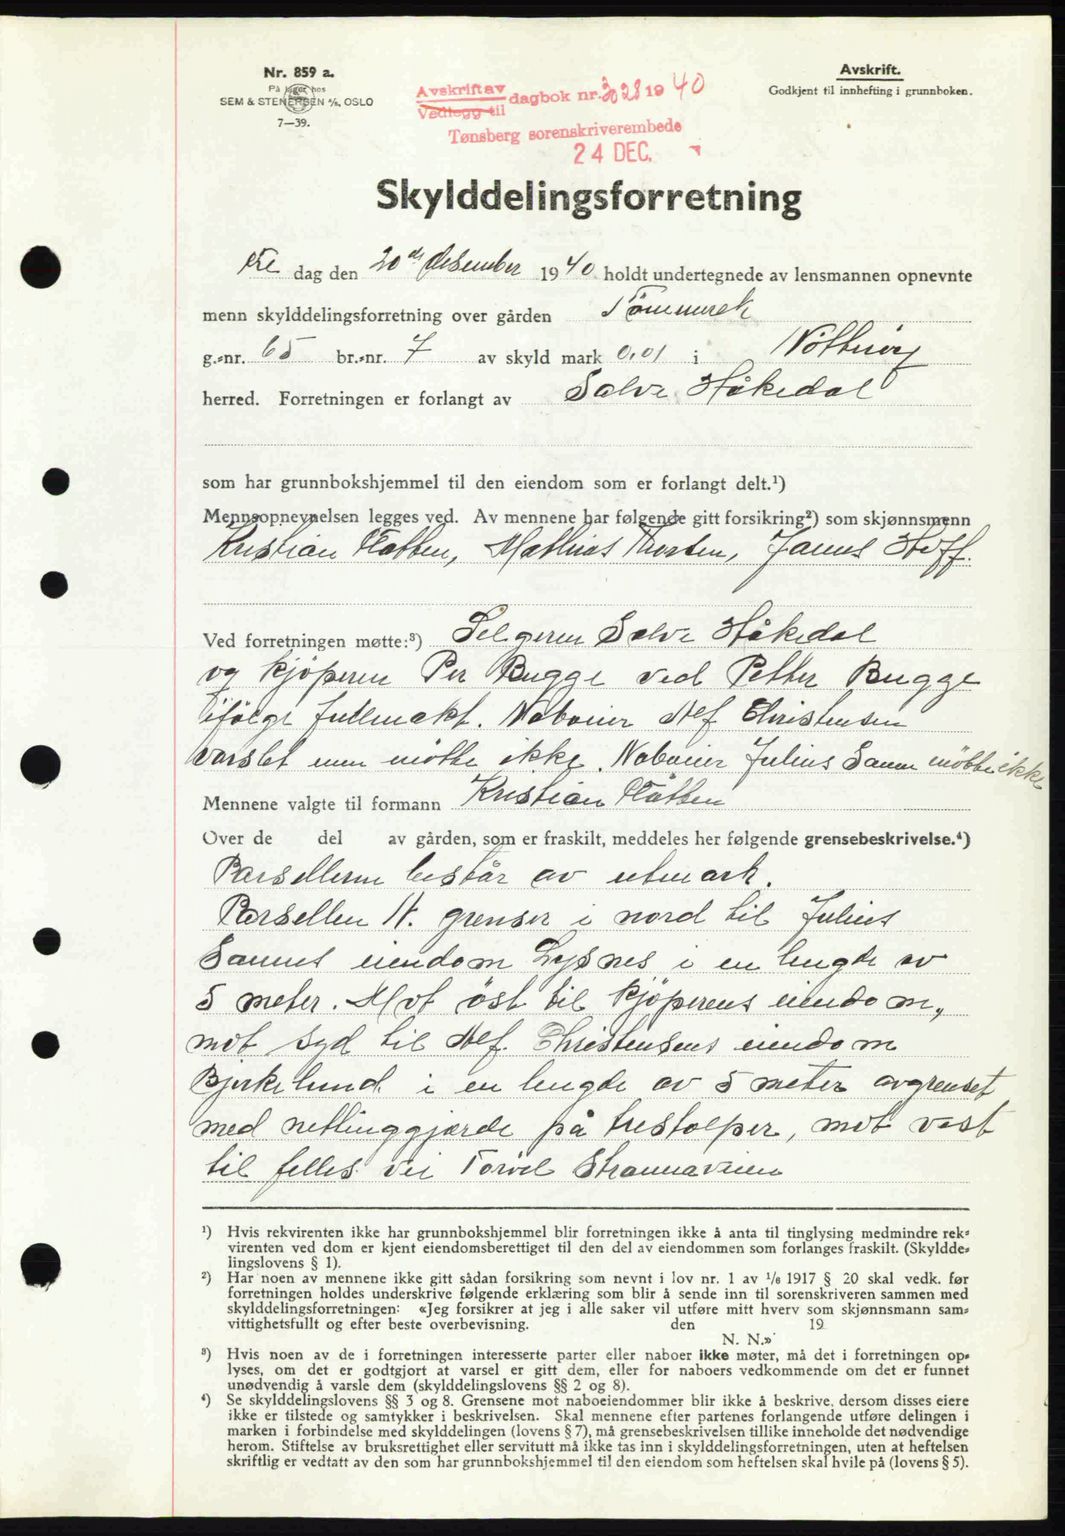 Nr. 859 a.
På lager hos
SEM & STENERSEN A/S, OSLO
7—39.
Avskrift av
Vedlegg til
dagbok nr. 3028 1940
Tønsberg sorenskriverembede
24 DEC.
Avskrift.
Godkjent til innhefting i grunnboken.
Skylddelingsforretning
År dag den 20de desember 1940 holdt undertegnede av lensmannen opnevnte
menn skylddelingsforretning over gården
g.-nr. 65 br.-nr. 7 av skyld mark 0,01 i Nøtterøy
herred. Forretningen er forlangt av Salve Håkedal
som har grunnbokshjemmel til den eiendom som er forlangt delt.¹)
Mennsopnevnelsen legges ved. Av mennene har følgende gitt forsikring²) som skjønnsmenn
Kristian Flåtten, Mathias Thorsen, James Hoff.
Ved forretningen møtte:³) Selgeren Salve Håkedal
og kjöperen Per Bugge ved Petter Bugge
ifölge fullmakt. Naboeier Alf Christensen
varslet men mötte ikke. Naboeier Julius Sanne mötte ikke
Mennene valgte til formann Kristian Flåtten
Over de del av gården, som er fraskilt, meddeles her følgende grensebeskrivelse.⁴)
Parsellene består av utmark.
Parsellen N. grenser i nord til Julius
Sannes eiendom Lysnes i en lengde av
5 meter. Mot öst til kjöperens eiendom,
mot syd til Alf. Christensens eiendom
Bjerkelund i en lengde av 5 meter avgrenset
med nettinggjærde på trestolper, mot vest
til felles vei
¹) Hvis rekvirenten ikke har grunnbokshjemmel blir forretningen ikke å anta til tinglysing medmindre rek-
virenten ved dom er kjent eiendomsberettiget til den del av eiendommen som forlanges fraskilt. (Skyldde-
lingslovens § 1).
²) Har noen av mennene ikke gitt sådan forsikring som nevnt i lov nr. 1 av ¹/₆ 1917 § 20 skal vedk. før
forretningen holdes underskrive følgende erklæring som blir å sende inn til sorenskriveren sammen med
skylddelingsforretningen: «Jeg forsikrer at jeg i alle saker vil utføre mitt hverv som skjønnsmann sam-
vittighetsfullt og efter beste overbevisning. den 19
N. N.»
³) Hvis noen av de i forretningen interesserte parter eller naboer ikke møter, må det i forretningen op-
lyses, om det er godtgjort at varsel er gitt dem, eller for naboers vedkommende om det er funnet
unødvendig å varsle dem (skylddelingslovens §§ 2 og 8).
⁴) Se skylddelingslovens §§ 3 og 8. Grensene mot naboeiendommer blir ikke å beskrive, dersom disses eiere
ikke er tilstede og samtykker i beskrivelsen. Skal mennene efter partenes forlangende utføre delingen i
marken i forbindelse med skylddelingen (lovens § 7), må grensebeskrivelsen tillike inneholde det nødvendige
herom. Stiftelse av bruksrettighet eller servitutt må ikke tas inn i skylddelingsforretningen, uten at heftelsen
skriftlig er vedtatt av den som har grunnbokshjemmel til den eiendom som heftelsen skal hvile på (lovens § 5).